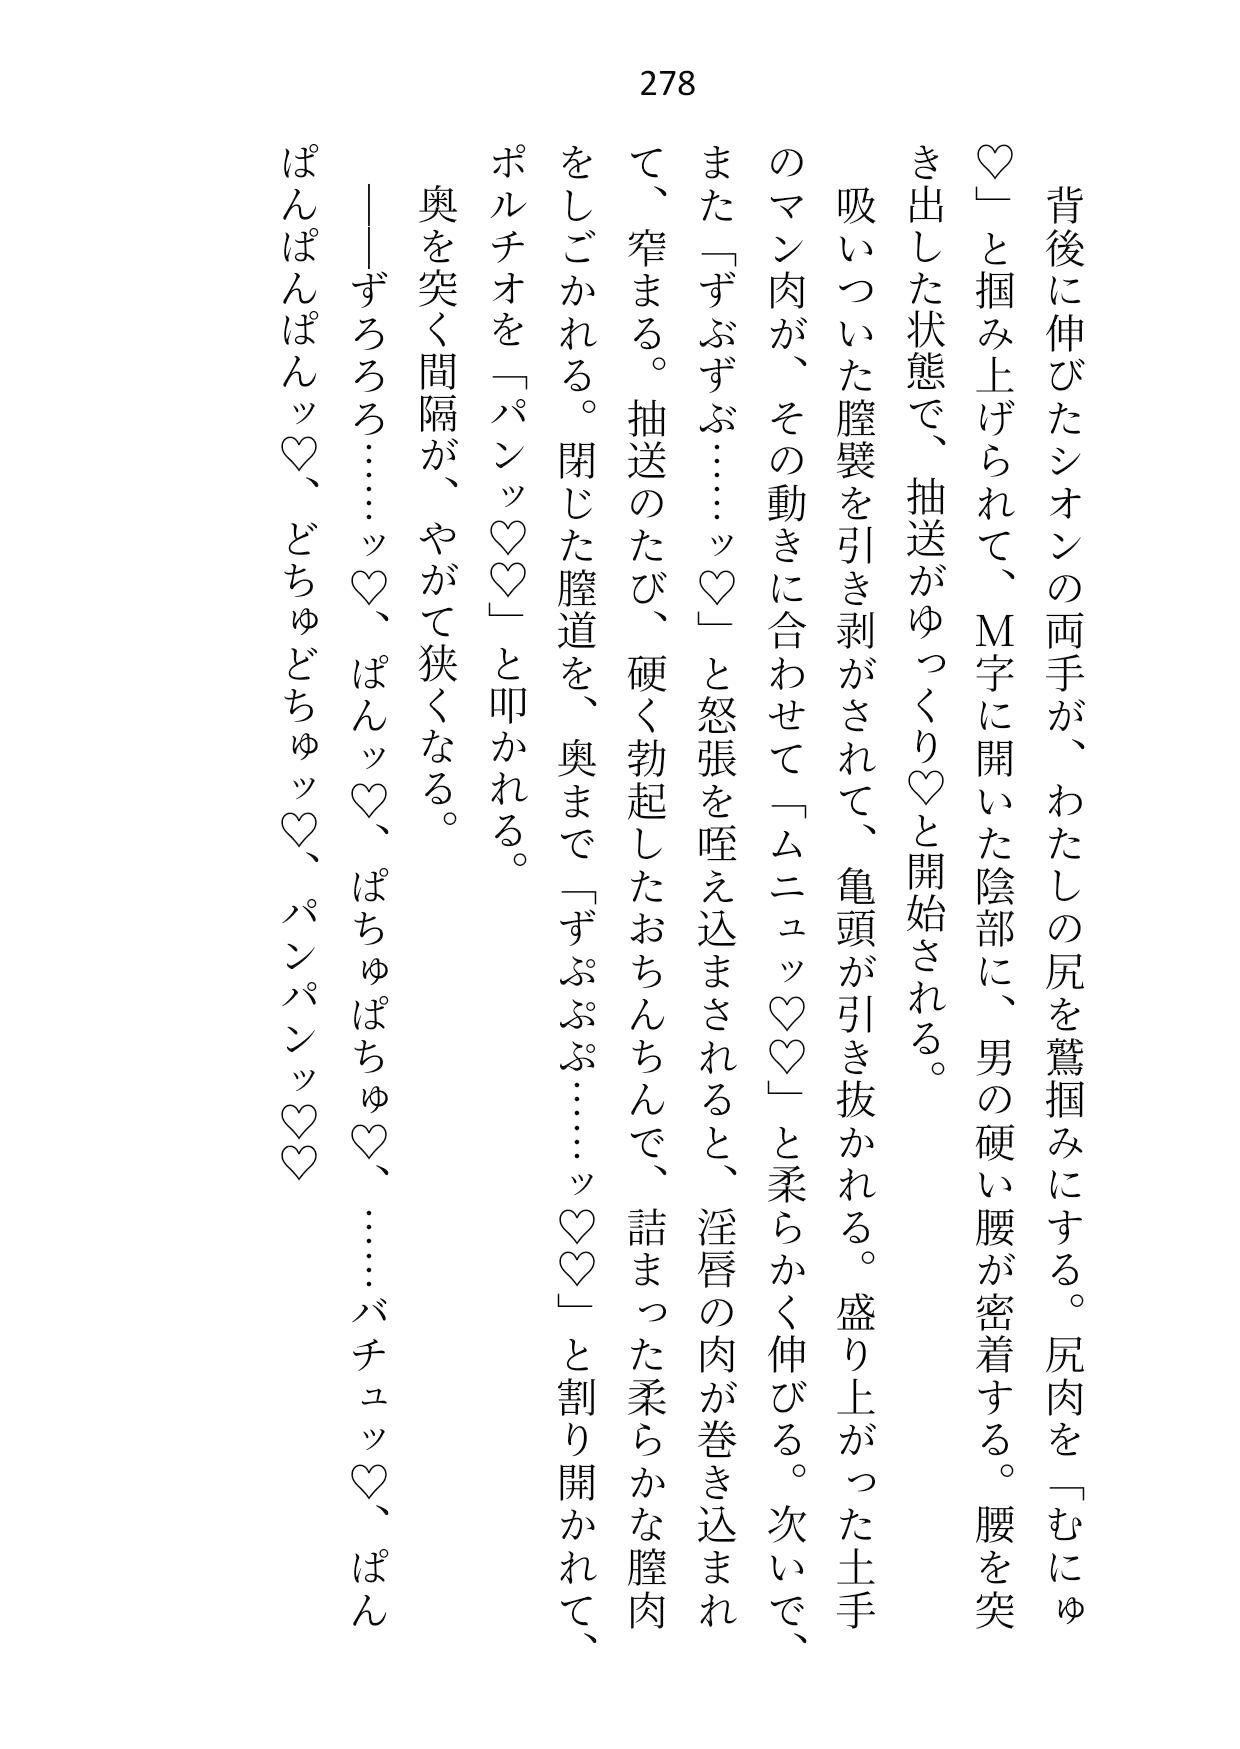 278
　背後に伸びたシオンの両手が、わたしの尻を鷲掴みにする。尻肉を「むにゅ
♡」と掴み上げられて、M字に開いた陰部に、男の硬い腰が密着する。腰を突
き出した状態で、抽送がゆっくり♡と開始される。
　吸いついた膣襞を引き剥がされて、亀頭が引き抜かれる。盛り上がった土手
のマン肉が、その動きに合わせて「ムニュッ♡♡」と柔らかく伸びる。次いで、
また「ずぶずぶ……ッ♡」と怒張を咥え込まされると、淫唇の肉が巻き込まれ
て、窄まる。抽送のたび、硬く勃起したおちんちんで、詰まった柔らかな膣肉
をしごかれる。閉じた膣道を、奥まで「ずぷぷぷ……ッ♡♡」と割り開かれて、
ポルチオを「パンッ♡♡」と叩かれる。
　奥を突く間隔が、やがて狭くなる。
　――ずろろろ……ッ♡、ぱんッ♡、ぱちゅぱちゅ♡、……バチュッ♡、ぱん
ぱんぱんぱんッ♡、どちゅどちゅッ♡、パンパンッ♡♡